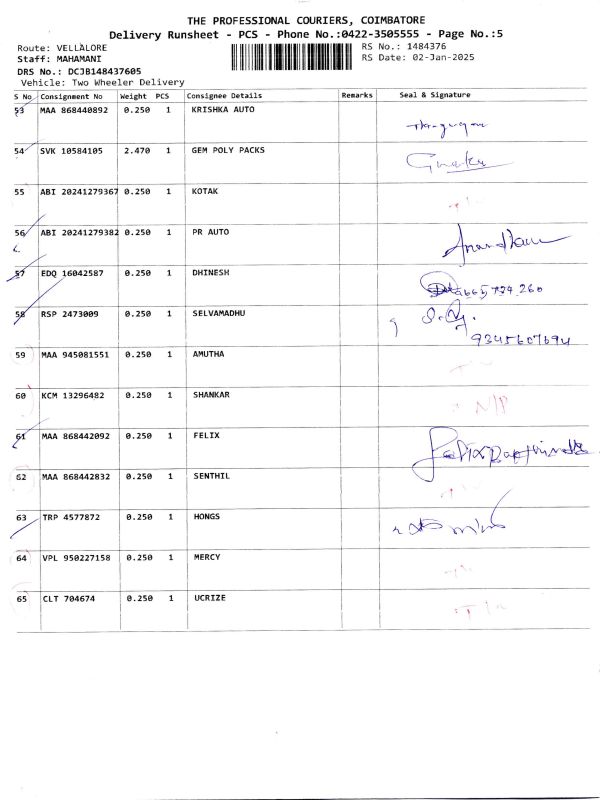 THE PROFESSIONAL COURIERS, COIMBATORE
Delivery Runsheet - PCS - Phone No.:0422-3505555 - Page No.:5
Route: VELLALORE RS No.: 1484376
Staff: MAHAMANI RS Date: 02-Jan-2025
DRS No.: DCJB148437605
Vehicle: Two Wheeler Delivery
S No Consignment No Weight PCS Consignee Details Remarks Seal & Signature
53 MAA 868440892 0.250 1 KRISHKA AUTO
54 SVK 10584105 2.470 1 GEM POLY PACKS
55 ABI 20241279367 0.250 1 KOTAK
56 ABI 20241279382 0.250 1 PR AUTO
57 EDQ 16042587 0.250 1 DHINESH
58 RSP 2473009 0.250 1 SELVAMADHU
9345607694
59 MAA 945081551 0.250 1 AMUTHA
60 KCM 13296482 0.250 1 SHANKAR N/P
61 MAA 868442092 0.250 1 FELIX
62 MAA 868442832 0.250 1 SENTHIL
63 TRP 4577872 0.250 1 HONGS
64 VPL 950227158 0.250 1 MERCY
65 CLT 704674 0.250 1 UCRIZE